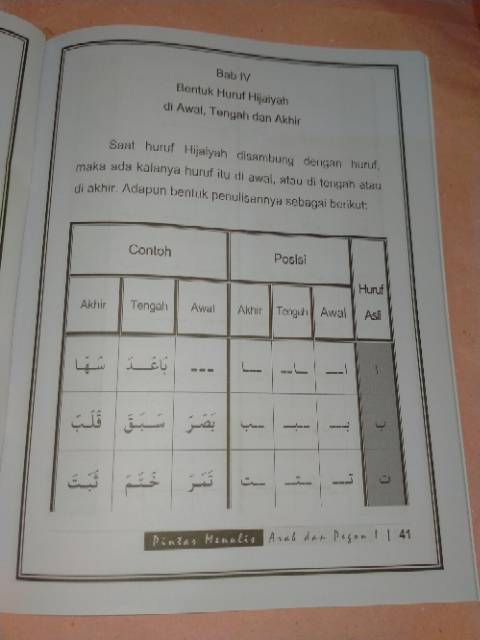 Bab IV
Bentuk Huruf Hijaiyah
di Awal, Tengah dan Akhir
Saat huruf Hijaiyah disambung dengan huruf,
maka ada kalanya huruf itu di awal, atau di tengah atau
di akhir. Adapun bentuk penulisannya sebagai berikut:
Contoh Posisi Huruf Asli
Akhir Tengah Awal Akhir Tengah Awal
سَهَا بَاعَدَ --- ـا ـاـ اـ ا
قَلَبَ سَبَقَ بَصَرَ ـب ـبـ بـ ب
ثَبَتَ خَتَمَ تَمَرَ ـت ـتـ تـ ت
Pintar Menulis Arab dan Pegon 1 | 41